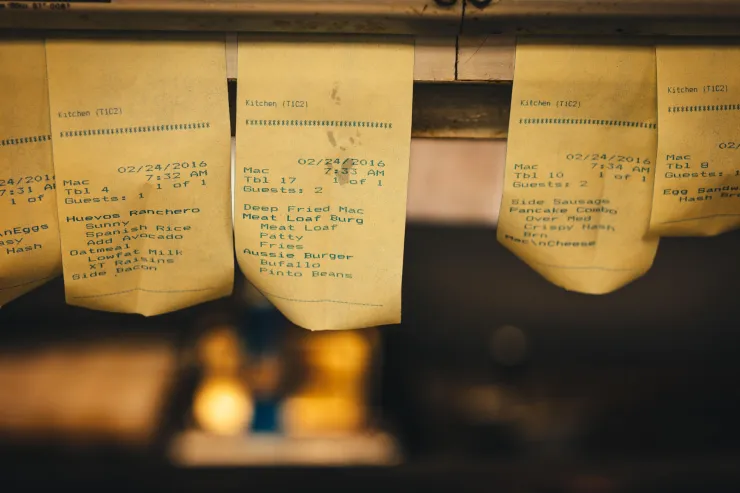 24/2016
7:31 AM
1 of
nEggs
asy
Hash
Kitchen (T1C2)
02/24/2016
Mac 7:32 AM
Tbl 4 1 of 1
Guests: 1
Huevos Ranchero
Sunny
Spanish Rice
Add Avocado
Oatmeal
Lowfat Milk
XT Raisins
Side Bacon
Kitchen (T1C2)
02/24/2016
Mac 7:33 AM
Tbl 17 1 of 1
Guests: 2
Deep Fried Mac
Meat Loaf Burg
Meat Loaf
Patty
Fries
Aussie Burger
Bufallo
Pinto Beans
Kitchen (T1C2)
02/24/2016
Mac 7:34 AM
Tbl 10 1 of 1
Guests: 2
Side Sausage
Pancake Combo
Over Med
Crispy Hash
Brn
Mac\nCheese
Kitchen (T1C2)
02/
Mac
Tbl 8
Guests: 1
Egg Sand
Hash Br